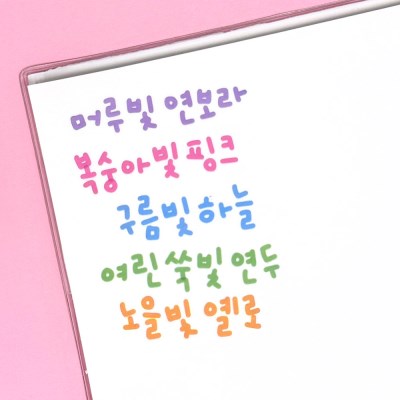 머루빛 연보라
복숭아빛 핑크
구름빛 하늘
여린 쑥빛 연두
노을빛 옐로